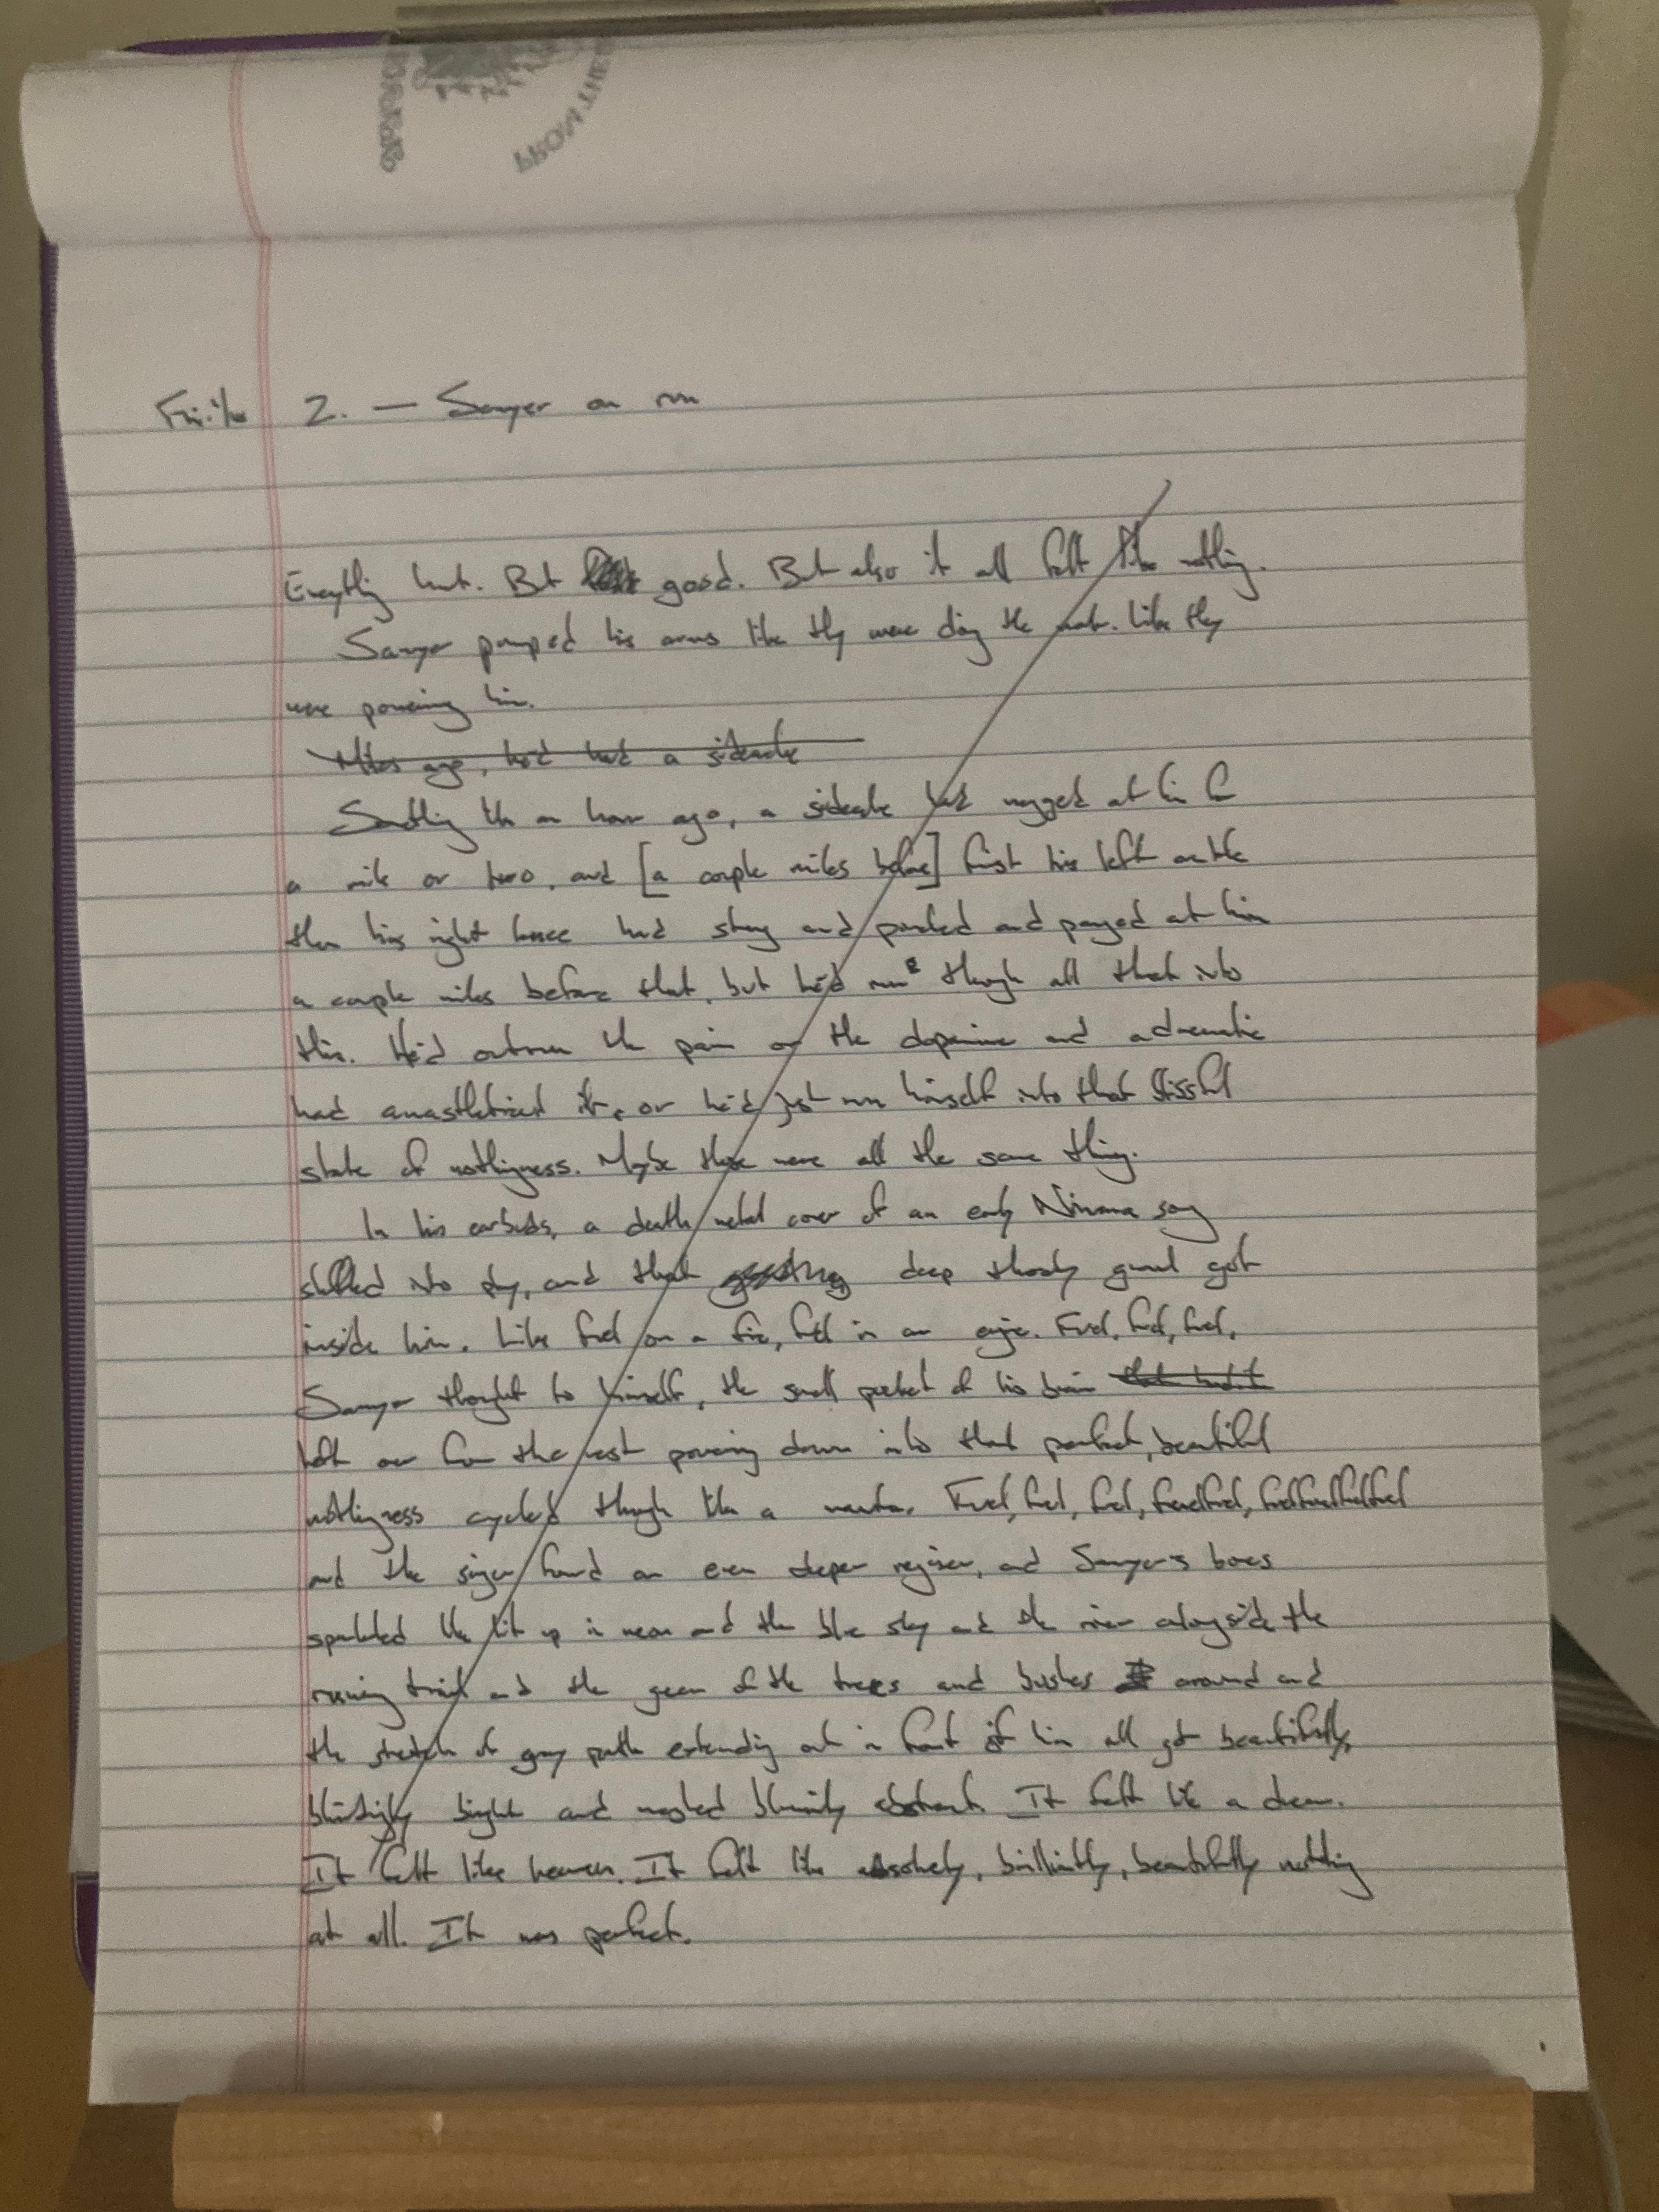 2. — Sawyer on run
Everything hurt. But good. But also it all felt like nothing.
Sawyer pumped his arms like they were doing the work. Like they
were powering him.
Miles ago, he'd had a sideache
Something like an hour ago, a sideache had nagged at him for
a mile or two, and [a couple miles before] first his left ankle
then his right knee had stung and and at him
a couple miles before that, but he'd run through all that into
this. He'd outrun the pain or the dopamine and adrenaline
had anaesthetized it, or he'd just run himself into that blissful
state of nothingness. Maybe those were all the same thing.
In his earbuds, a death metal cover of an early Nirvana song
shuffled into play, and that deep throaty growl got
inside him. Like fuel on a fire, fuel in an engine. Fuel, fuel, fuel,
Sawyer thought to himself, the small pocket of his brain
left over from the rest powering down into that perfect, beautiful
nothingness cycled through like a mantra. Fuel, fuel, fuel, fuelfuel, fuelfuelfuelfuel
and the singer found an even deeper register, and Sawyer's bones
sparkled like lit up in neon and the blue sky and the river alongside the
running trail and the green of the trees and bushes around and
the stretch of gray path extending out in front of him all got beautifully,
blindingly bright and abstract. It felt like a dream.
It felt like heaven. It felt like absolutely, brilliantly, beautifully nothing
at all. It was perfect.